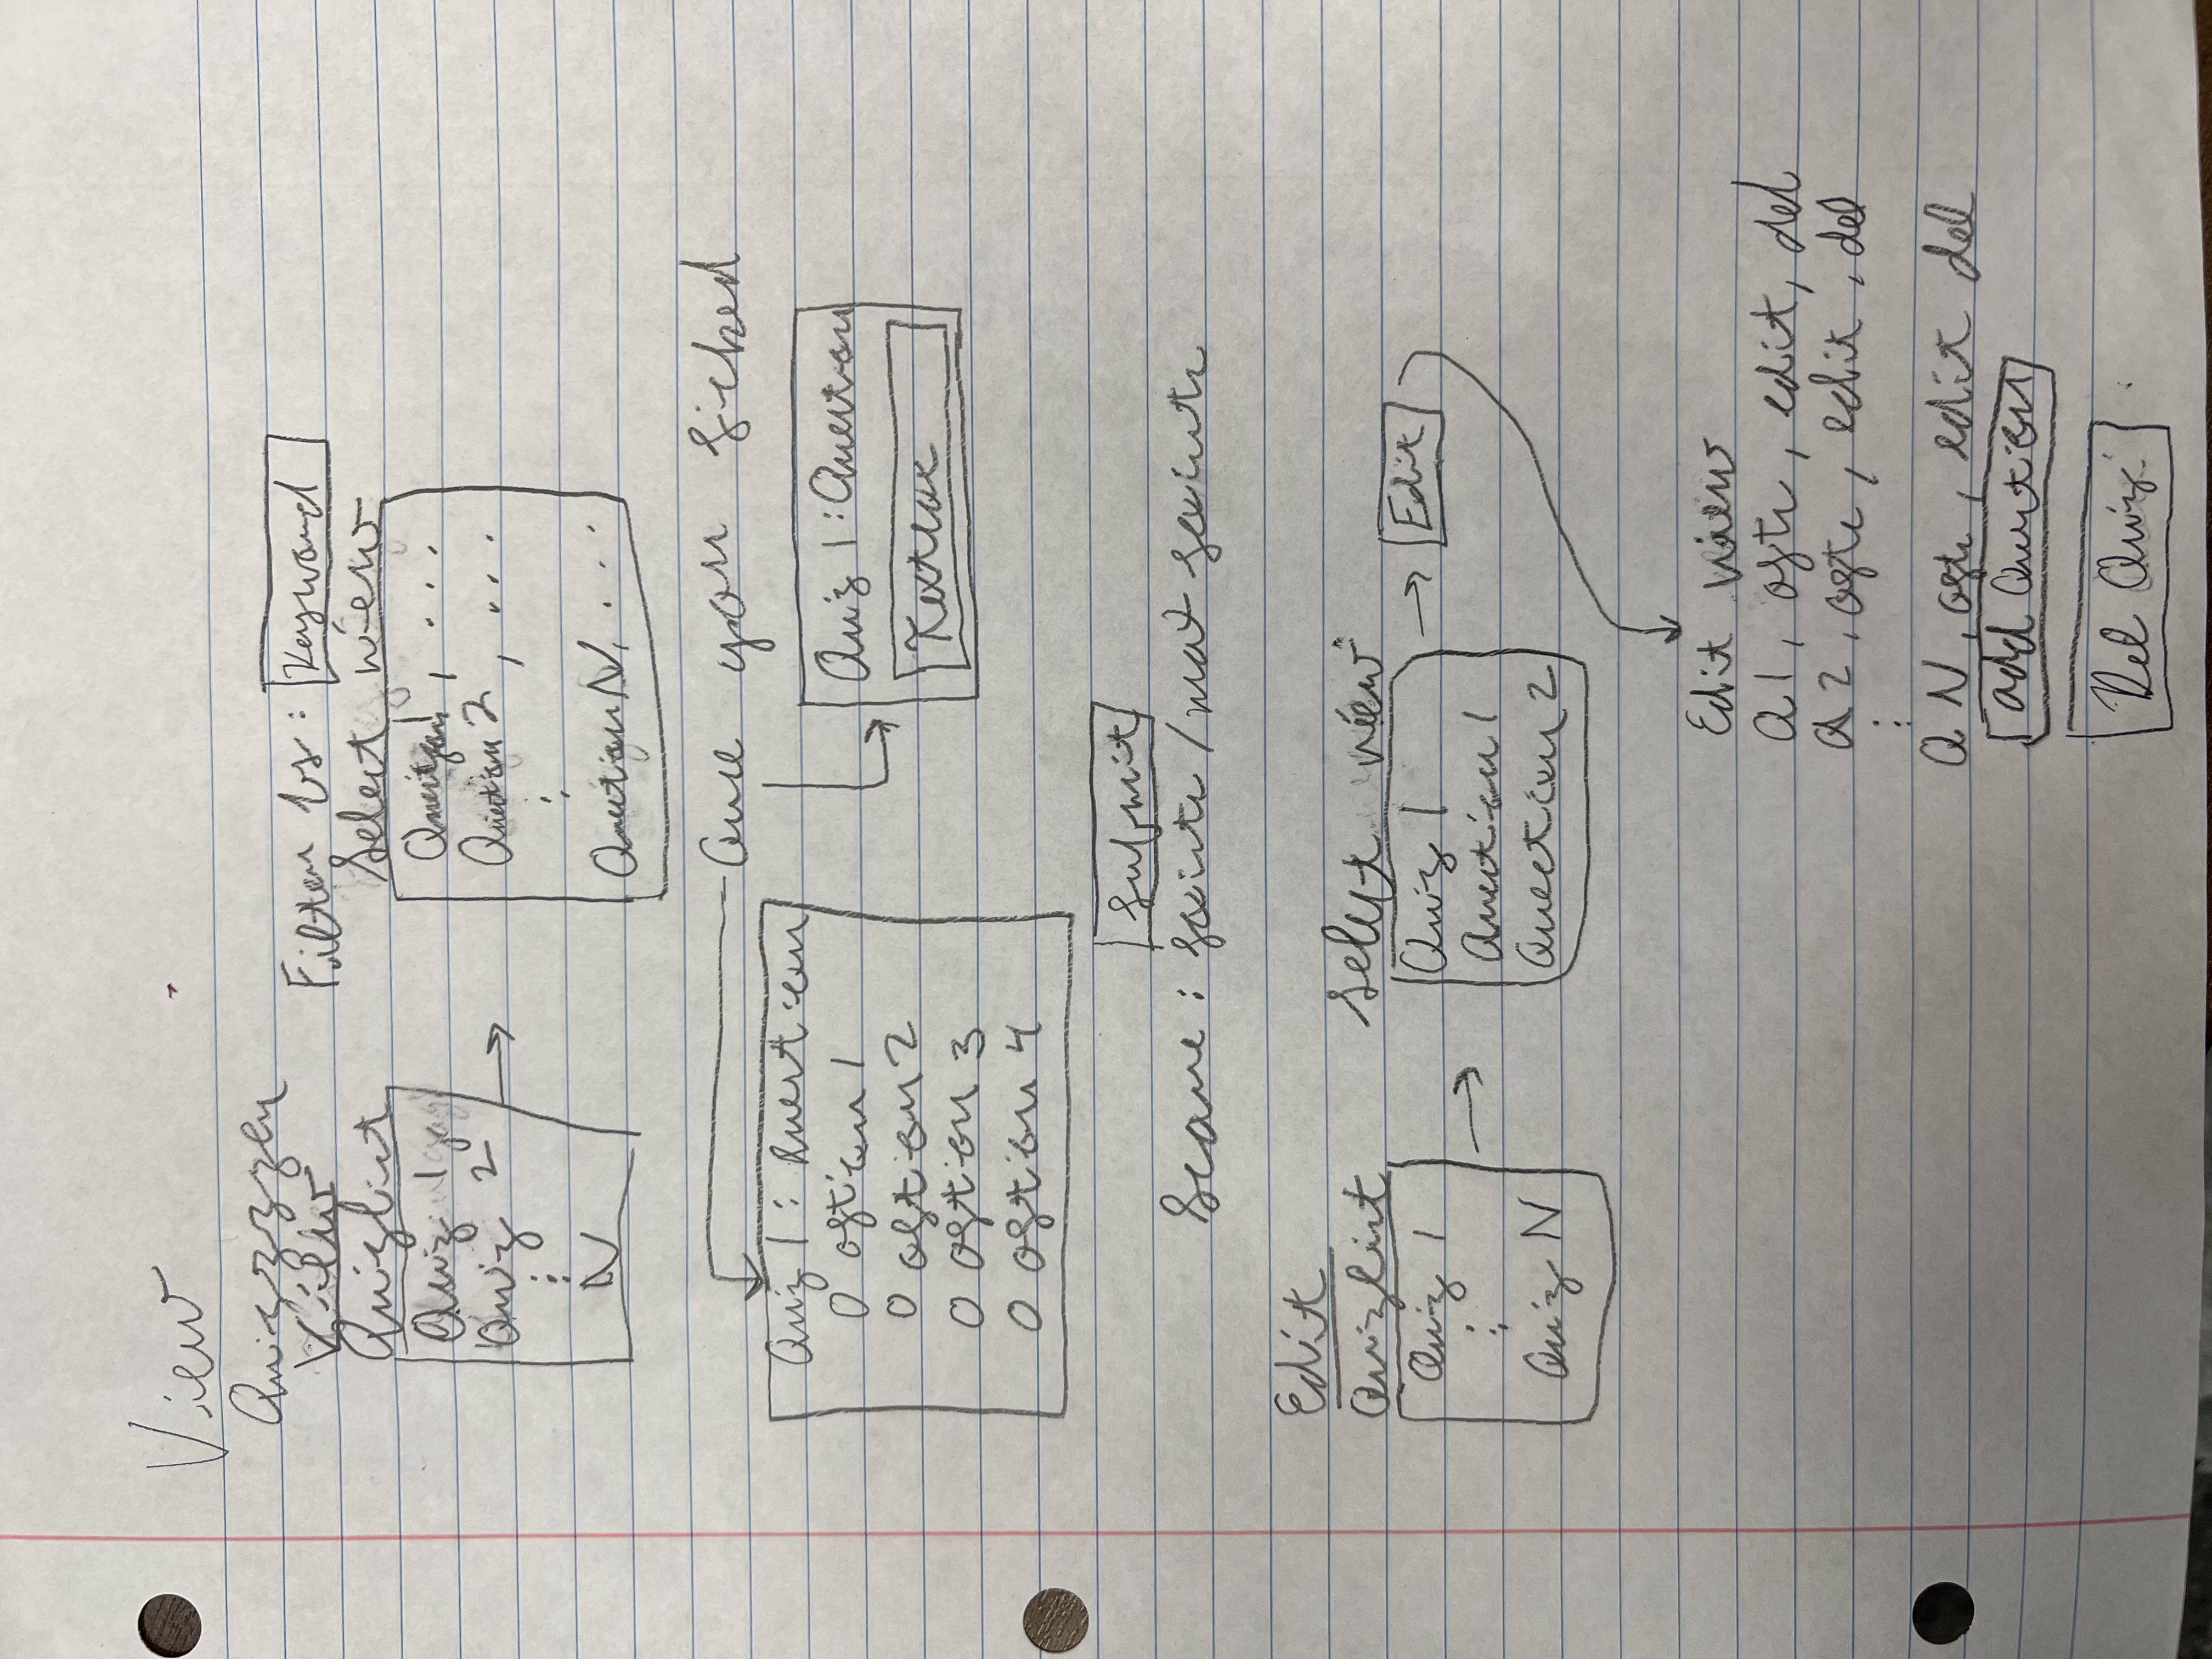 View
Quizzzzer
View
Filter by: Keyword
Quizlist
Select view
Quiz 1
Quiz 2
:
N
Question 1, ...
Question 2, ...
:
Question N, ...
Once you picked
Quiz 1: Question
O option 1
O option 2
O option 3
O option 4
Quiz 1: Question
Textbox
Submit
Score: points / max points
Edit
Quizlist
Quiz 1
:
Quiz N
Select view
Quiz 1
Question 1
Question 2
Edit
Edit view
Q1, opts, edit, del
Q2, opts, edit, del
:
QN, opts, edit del
add Question
Del Quiz